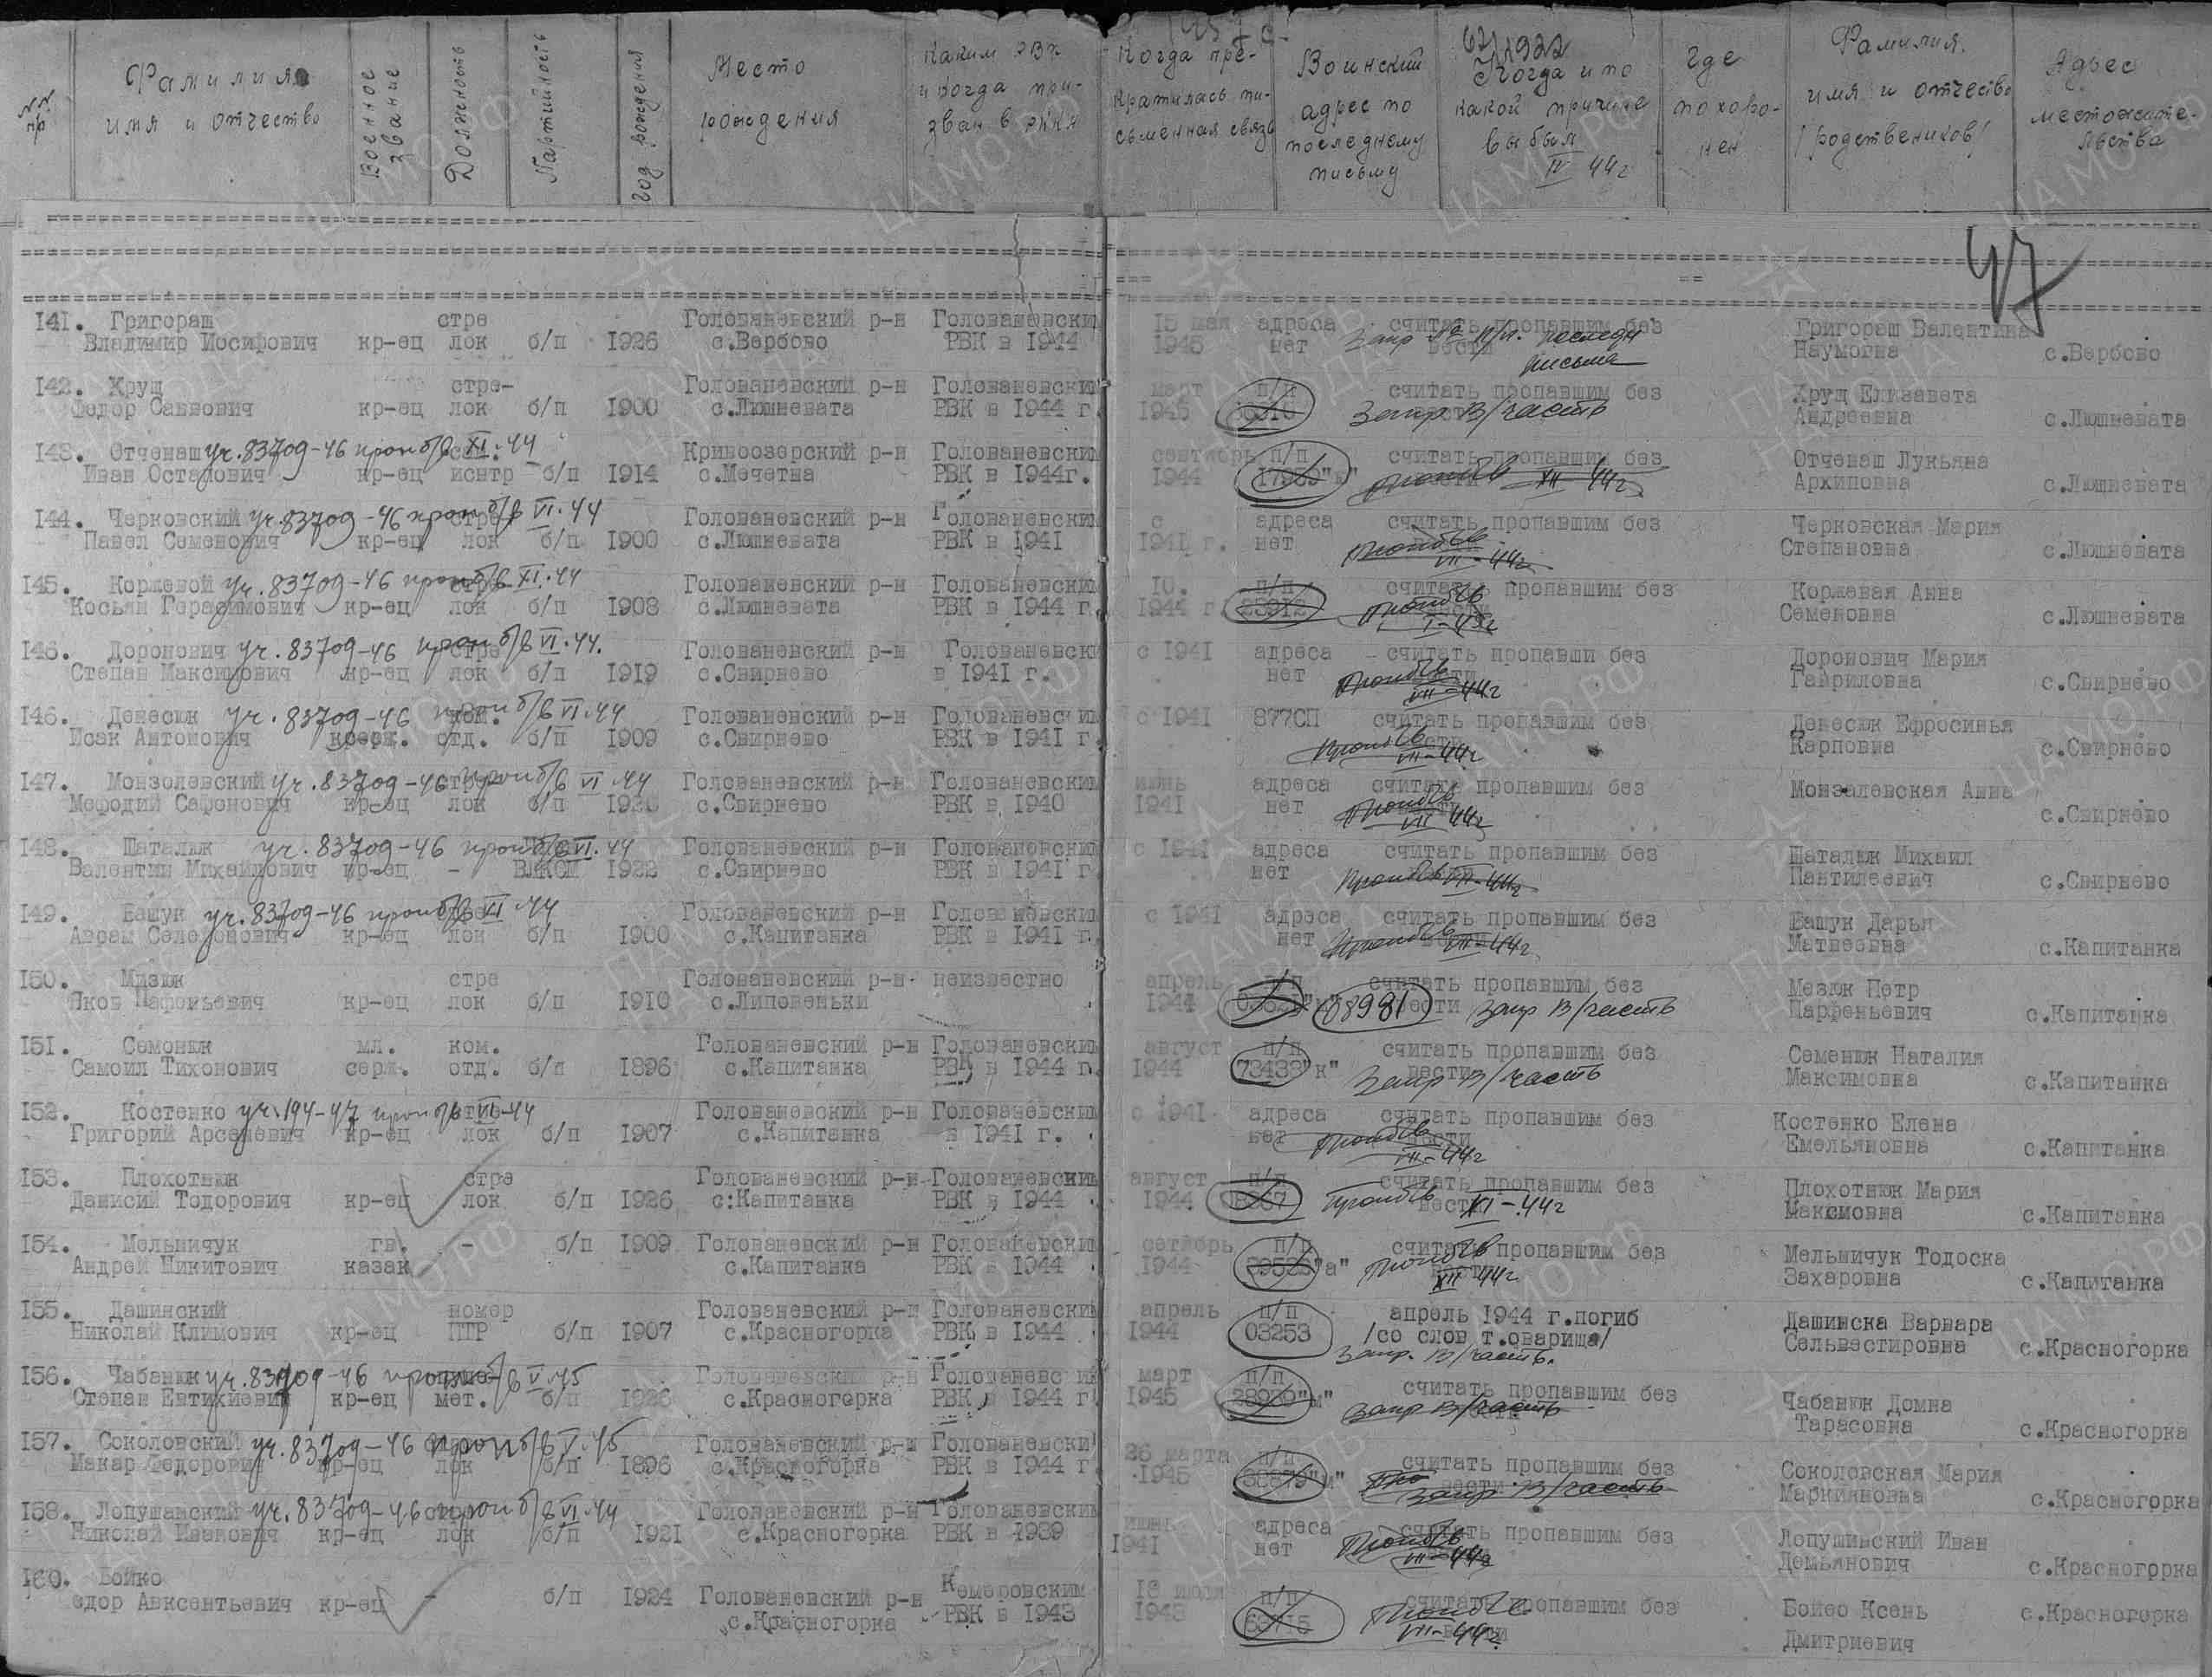 №№ пр
Фамилия имя и отчество
Военное звание
Должность
Партийность
Год рождения
Место рождения
Каким РВК и когда призван в РККА
Когда прекратилась письменная связь
Воинский адрес по последнему письму
Когда и по какой причине выбыл
IV 44г
где похоронен
Фамилия имя и отчество /родственников/
Адрес местожительства
47
141. Григораш стре Голованевский р-н Голованевским 15 мая адреса считать пропавшим без Григораш Валентина
Владимир Иосифович кр-ец лок б/п 1926 с.Вербово РВК в 1944 1945 нет вести Наумовна с.Вербово
Запр. письма
142. Хрущ стре- Голованевский р-н Голованевским март п/п считать пропавшим без Хрущ Елизавета
Федор Саввович кр-ец лок б/п 1900 с.Люшневата РВК в 1944 г. 1945 Запр В/часть Андреевна с.Люшневата
143. Отченаш уч.83709-46 проп б/в XI.44 Кривоозерский р-н Голованевским сентябрь п/п считать пропавшим без Отченаш Лукьяна
Иван Остапович кр-ец инстр б/п 1914 с.Мечетна РВК в 1944г. 1944 проп б/в XII 44г Архиповна с.Люшневата
144. Черковский уч.83709-46 проп б/в VI.44 Голованевский р-н Голованевским с адреса считать пропавшим без Черковская Мария
Павел Семенович кр-ец лок б/п 1900 с.Люшневата РВК в 1941 1941 г. нет проп б/в VII-44г Степановна с.Люшневата
145. Коржевой уч.83709-46 проп б/в XI.44 Голованевский р-н Голованевским 10. п/п считать пропавшим без Коржевая Анна
Косьян Герасимович кр-ец лок б/п 1908 с.Люшневата РВК в 1944 г. 1944 г проп б/в Семеновна с.Люшневата
146. Доронович уч.83709-46 проп б/в VI.44. Голованевский р-н Голованевски с 1941 адреса считать пропавши без Доронович Мария
Степан Максимович кр-ец лок б/п 1919 с.Свирнево в 1941 г. нет проп б/в VII-44г Гавриловна с.Свирнево
146. Денесюк уч.83709-46 проп б/в VI.44 Голованевский р-н Голованевским с 1941 877СП считать пропавшим без Денесюк Ефросинья
Исак Антонович отд. б/п 1909 с.Свирнево РВК в 1941 г проп б/в VII-44г Карповна с.Свирнево
147. Монзолевский уч.83709-46 проп б/в VI.44 Голованевский р-н Голованевским июнь адреса считать пропавшим без Монзолевская Анна
Мефодий Сафонович кр-ец лок б/п с.Свирнево РВК в 1940 1941 нет проп б/в VII 44г с.Свирнево
148. Шаталюк уч.83709-46 проп б/в VI.44 Голованевский р-н Голованевским с 1941 адреса считать пропавшим без Шаталюк Михаил
Валентин Михайлович кр-ец - ВЛКСМ 1922 с.Свирнево РВК в 1941 г нет проп б/в VII-44г Пантилеевич с.Свирнево
149. Бащук уч.83709-46 проп б/в VI.44 Голованевский р-н Голованевским с 1941 адреса считать пропавшим без Бащук Дарья
Аврам Селефонович кр-ец лок б/п 1900 с.Капитанка РВК в 1941 г. нет проп б/в VII-44г Матвеевна с.Капитанка
150. Мизюк стре Голованевский р-н неизвестно апрель п/п считать пропавшим без Мезюк Петр
Яков Парфоньевич кр-ец лок б/п 1910 с.Липовеньки 1944 08981 вести запр В/часть Парфеньевич с.Капитанка
151. Семонюк мл. ком. Голованевский р-н Голованевским август п/п считать пропавшим без Семенюк Наталия
Самоил Тихонович серж. отд. б/п 1896 с.Капитанка РВК в 1944 г. 1944 73433"к" вести Запр В/часть Максимовна с.Капитанка
152. Костенко уч.194-47 проп б/в VI-44 Голованевский р-н Голованевским с 1941 адреса считать пропавшим без Костенко Елена
Григорий Арсеневич кр-ец лок б/п 1907 с.Капитанка в 1941 г. нет вести проп б/в VII-44г Емельяновна с.Капитанка
153. Плохотнюк стре Голованевский р-н Голованевским август п/п считать пропавшим без Плохотнюк Мария
Данисий Тодорович кр-ец лок б/п 1926 с:Капитанка РВК в 1944 1944 проп б/в вести XI-44г Максмовна с.Капитанка
154. Мельничук гв. - б/п 1909 Голованевский р-н Голованевским сентябрь п/п считать пропавшим без Мельничук Тодоска
Андрей Никитович казак с.Капитанка РВК в 1944 1944 "а" проп б/в XII 44г Захаровна с.Капитанка
155. Дашинский номер Голованевский р-н Голованевским апрель п/п апрель 1944 г.погиб Дашинска Варвара
Николай Климович кр-ец ПТР б/п 1907 с.Красногорка РВК в 1944 1944 03253 /со слов т.оварища/ Сельвестировна с.Красногорка
Запр. В/часть.
156. Чабанюк уч.83709-46 проп б/в V.45 Голованевский р-н Голованевский март п/п считать пропавшим без Чабанюк Домна
Степан Евтихиевич кр-ец мет. б/п 1926 с.Красногорка РВК в 1944 г 1945 "м" запр В/часть Тарасовна с.Красногорка
157. Соколовский уч.83709-46 проп б/в V.45 Голованевский р-н Голованевски 26 марта п/п считать пропавшим без Соколовская Мария
Макар Федорович кр-ец лок б/п 1896 с.Красногорка РВК в 1944 г 1945 "м" вести запр В/часть Маркияновна с.Красногорка
158. Лопушанский уч.83709-46 проп б/в VI.44 Голованевский р-н Голованевским июнь адреса считать пропавшим без Лопушинский Иван
Николай Иванович кр-ец лок б/п 1921 с.Красногорка РВК в 1939 1941 нет проп б/в VII-44г Демьянович с.Красногорка
160. Бойко Кемеровским
едор Авксентьевич кр-ец - б/п 1924 Голованевский р-н РВК в 1943 п/п считать пропавшим без Бойео Ксень с.Красногорка
с.Красногорка 1943 проп б/в VII-44г вести Дмитриевич